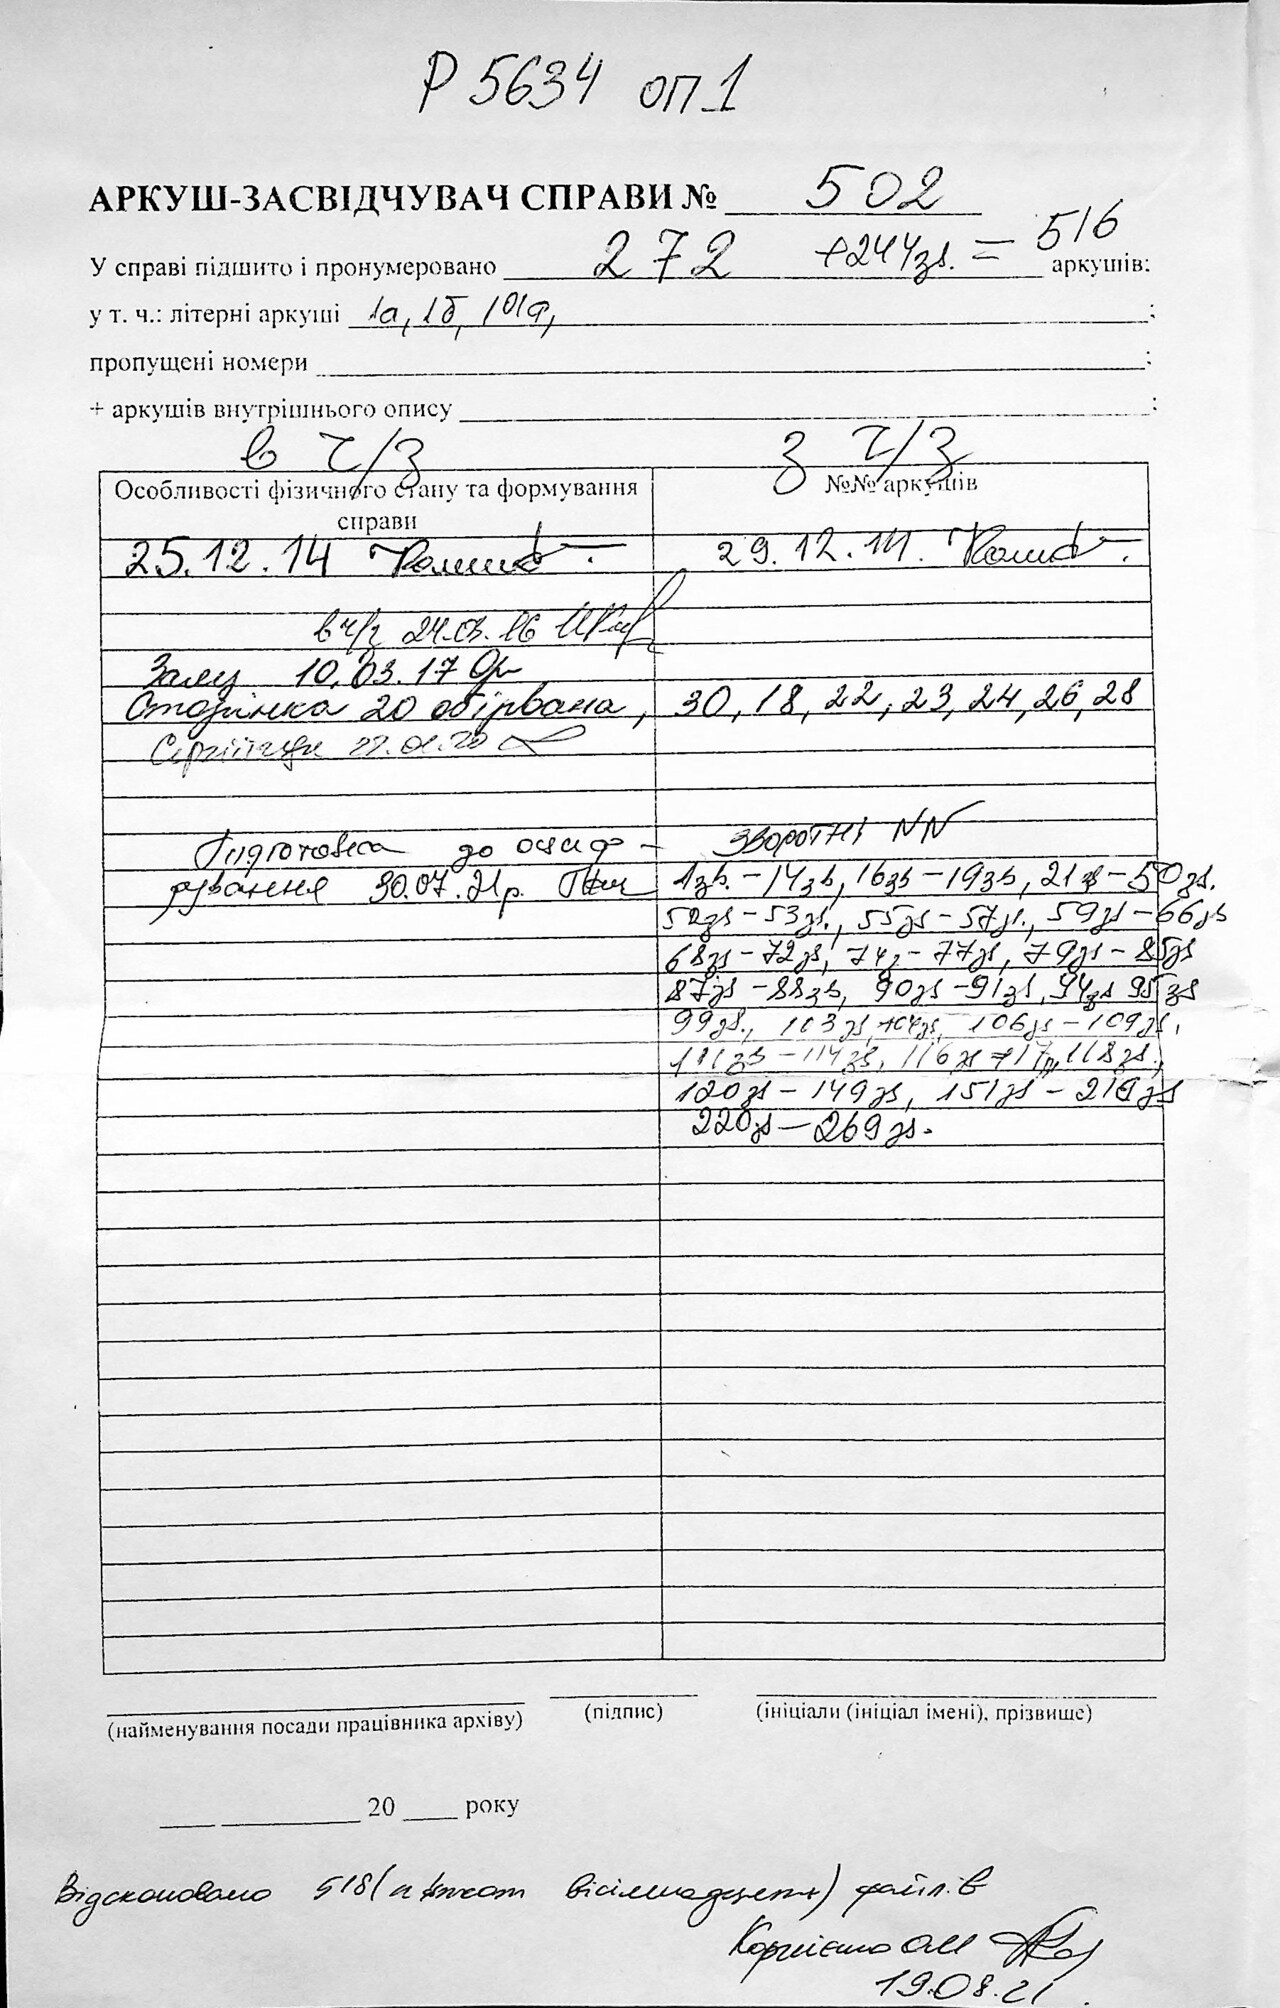 Р 5634 оп 1
АРКУШ-ЗАСВІДЧУВАЧ СПРАВИ № 502
У справі підшито і пронумеровано 272 +244зв. = 516 аркушів:
у т. ч.: літерні аркуші 1а, 1б, 101а, ;
пропущені номери ;
+ аркушів внутрішнього опису ;
в ч/з з ч/з
Особливості фізичного стану та формування справи №№ аркушів
25.12.14 29.12.14.
в ч/з 24.03.16
10.03.17
Сторінка 20 обірвана, 30, 18, 22, 23, 24, 26, 28
Підготовка до оциф- зворотні NN
рування 30.07.21р. 1зв. – 14зв, 16зв – 19зв, 21зв – 50зв.
52зв – 53зв., 55зв – 57зв., 59зв – 66зв
68зв – 72зв, 74з – 77зв, 79зв – 85зв
87зв – 88зв, 90зв – 91зв, 94зв 95зв
99зв., 103зв, 104зв, 106зв – 109зв,
111зв – 114зв, 116зв 118зв.,
120зв – 149зв, 151зв – 219зв
220зв – 269зв.
(найменування посади працівника архіву) (підпис) (ініціали (ініціал імені), прізвище)
20 року
Відскановано 518 (п'ятсот вісімнадцять) файлів
19.08.21.